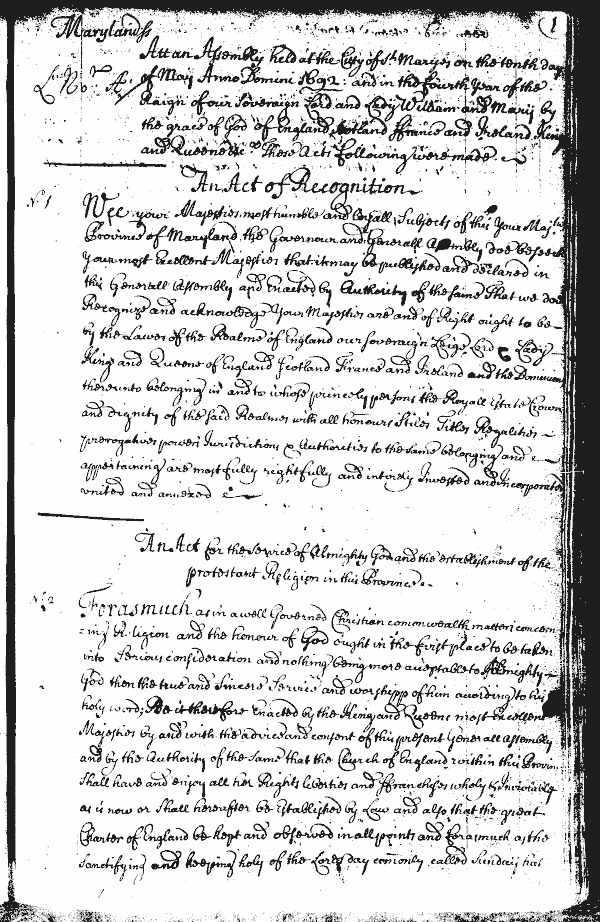 Maryland ss
1
Att an Assembly held at the Citty of St Maryes on the tenth day
Lib No A
of May Anno Domini 1692: and in the fourth Year of the
Raign of our Soveraign Lord and Lady William and Mary by
the grace of God of England Scotland ffrance and Ireland King
and Queene &c These Acts following were made
An Act of Recognition
No 1
Wee your Majesties most humble and Loyall Subjects of this Your Majties
Province of Maryland the Governour and Generall Assembly doe beseech
Your most Excellent Majesties that it may be published and declared in
this Generall Assembly and Enacted by Authority of the same That we doe
Recognize and acknowledge Your Majesties are and of Right ought to be
by the Lawes of the Realme of England our Sovereign Leige Lord & Lady
King and Queene of England Scotland France and Ireland and the Dominions
thereunto belonging in and to whose princely persons the Royall Estate Crown
and dignity of the said Realmes with all honours Stiles Titles Regalities
prerogatives powers Jurisdictions & Authorities to the same belonging and
appertaining are most fully rightfully and intirely Invested and Incorporated
united and annexed
An Act for the Service of Almighty God and the establishment of the
protestant Religion in this Province
No 2
Forasmuch as in a well Governed Christian comonwealth matters concern
=ing Religion and the honour of God ought in the first place to be taken
into Serious consideration and nothing being more acceptable to Almighty
God then the true and Sincere Service and worshipp of him according to his
holy word; Be it therefore Enacted by the King and Queens most Excellent
Majesties by and with the advice and consent of this present Generall Assembly
and by the Authority of the same that the Church of England within this Province
Shall have and enjoy all her Rights liberties and Franchises wholy & Inviolable
as is now or Shall hereafter be Established by Law and also that the great
Charter of England be kept and observed in all points and Forasmuch as the
Sanctifying and keeping holy of the Lords day comonly called Sunday hat